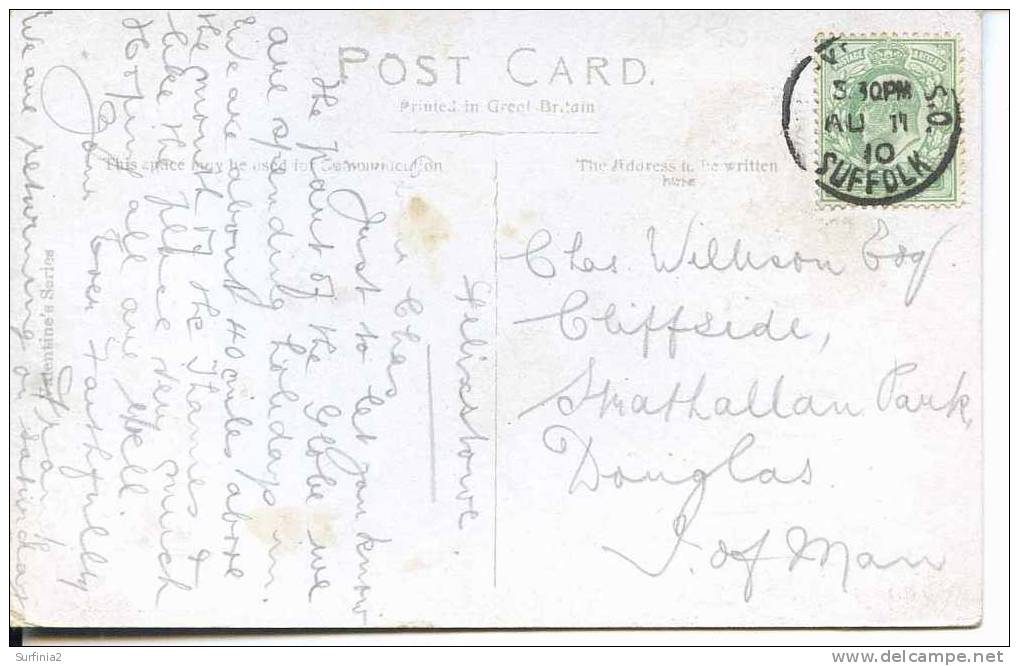 POST CARD.
Printed in Great Britain
This space may be used for Communication
The Address to be written
here
Valentine's Series
3 30PM
AU 11
10
S.O.
SUFFOLK
POSTAGE & REVENUE
Felixstowe
Chas
Just to let you know
the part of the Globe we
are spending holidays in.
We are about 40 miles above
the mouth of the Thames &
like the place very much
Hoping all are well
Yours Ever Faithfully
Frank
We are returning on Saturday
Chas. Wilkson Esq.
Cliffside,
Strathallan Park,
Douglas.
I. of Man
Surfinia2